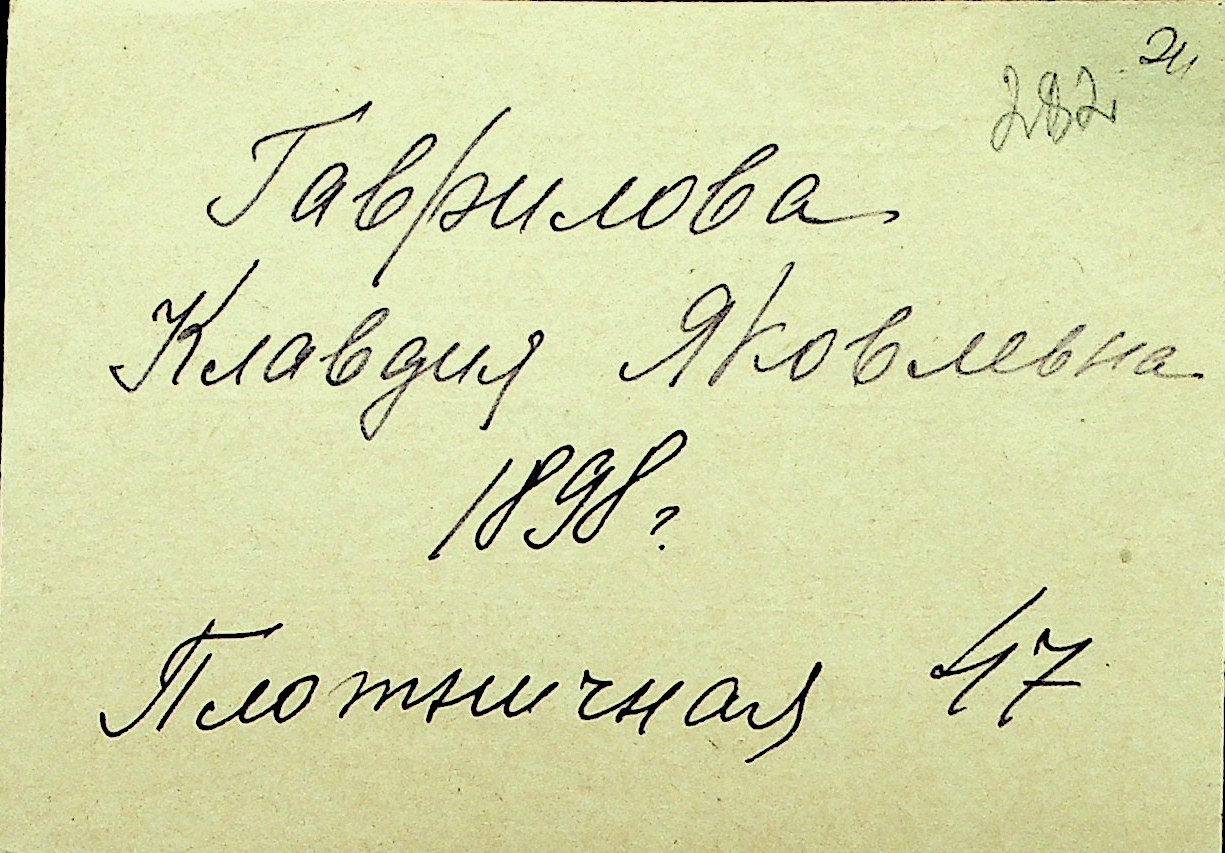 282
Гаврилова
Клавдия Яковлевна
1898 г
Плотничная 47